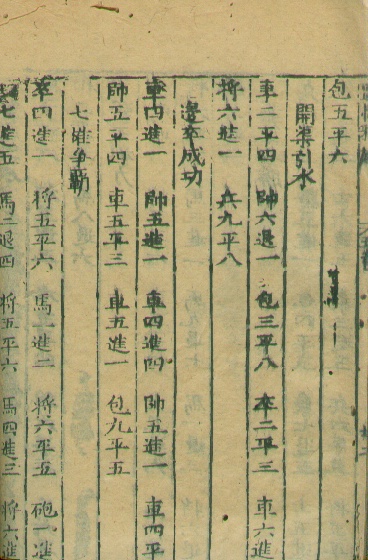 包五平六
開渠引水
車二平四 帥六退一 包三平八 卒二平三 車六進
將六進一 兵九平八
邊卒成功
車四進一 帥五進一 車四進四 帥五進一 車四平
帥五平四 車五平三 車五進一 包九平五
七雄爭霸
卒四進一 將五平六 馬一進二 將六平五 砲一進
七進五 馬二退四 將五平六 馬四進三 將六進